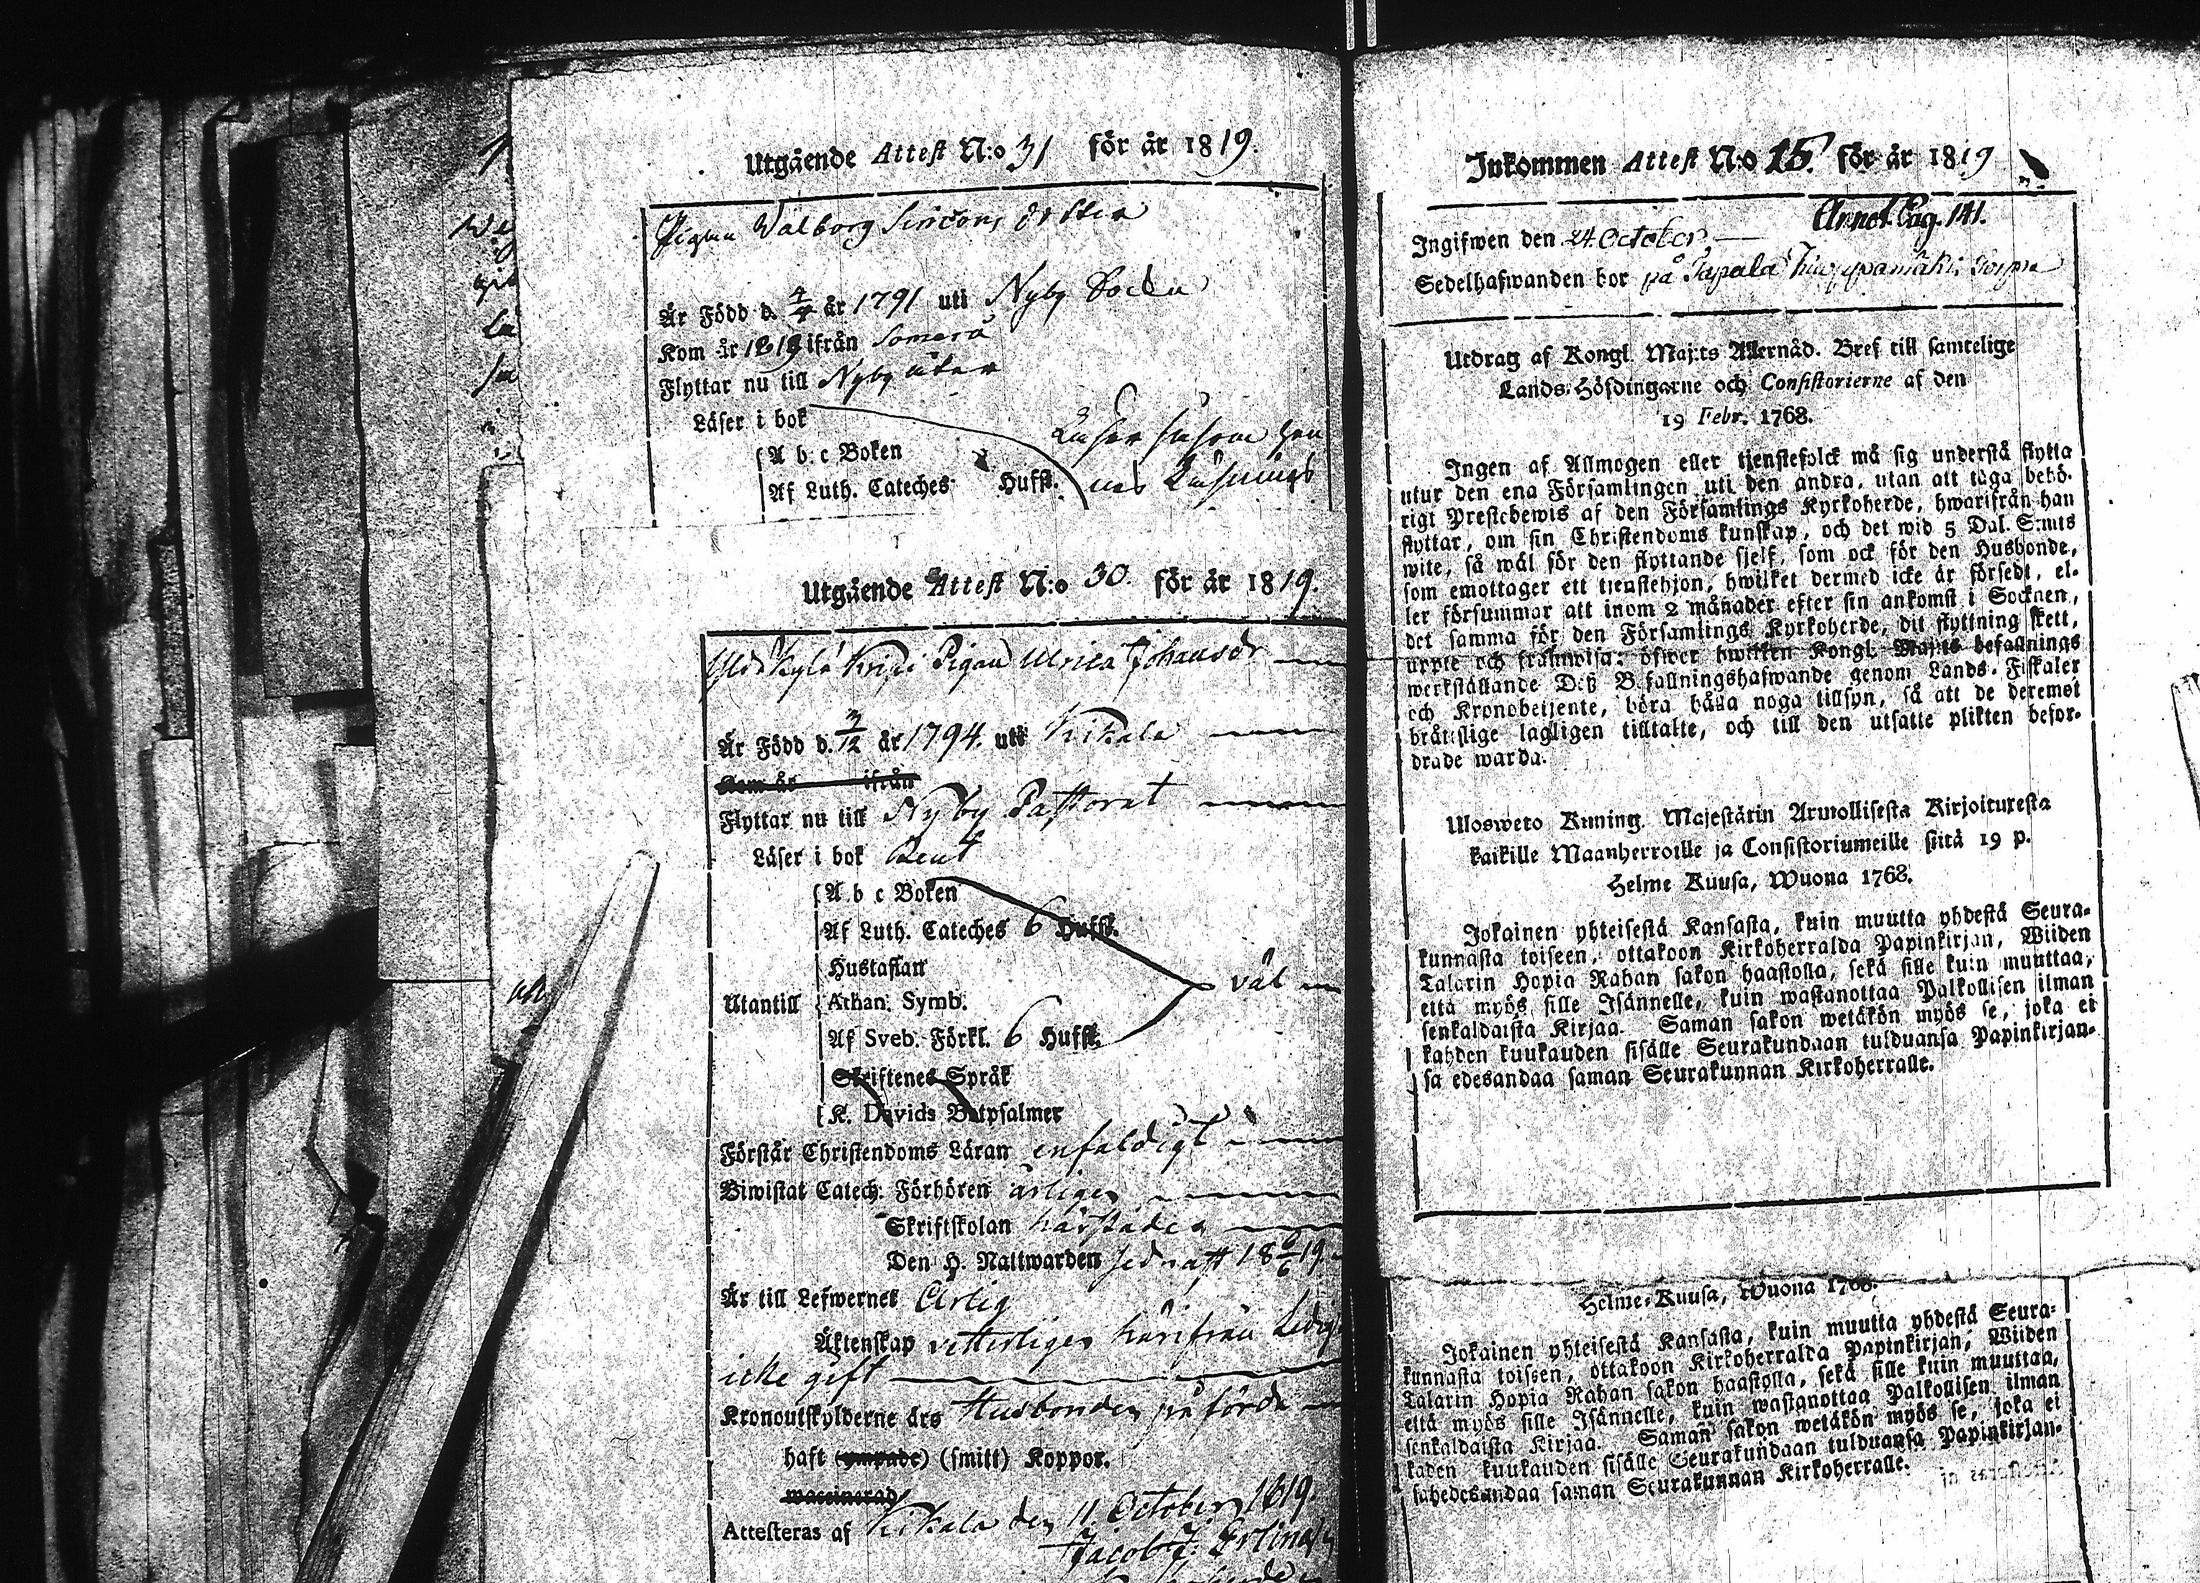 Utgående Attest N:o 31 för år 1819.
Pigan Walborg Simons dotter
Är Född d. 4/4 år 1791 uti Nyby Socken
Kom år 1818 ifrån Somero
Flyttar nu till Nyby åter
Läser i bok
A b c Boken
Af Luth. Cateches Hufst.
Utgående Attest N:o 30. för år 1819.
Pigan Ulrica Johansdr
Är Född d. 3/12 år 1794. uti Kikala
Kom år ifrån
Flyttar nu till Nyby Pastorat
Läser i bok Rent
A b c Boken
Af Luth. Cateches 6 Hufst.
Hustaflan
Utantill Athan. Symb. väl
Af Sveb. Förkl. 6 Hufst.
Skriftenes Språk
K. Davids Botpsalmer
Förstår Christendoms Läran enfaldigt
Biwistat Catech. Förhören årligen
Skriftskolan härstädes
Den H. Nattwarden sednast 18 6/6 19
Är till Lefwernet Ärlig
Äktenskap vetterligen härifrån Ledig
icke gift
Kronoutskylderne äro Husbonden påförde
haft (ympade) (smitt) Koppor.
waccinerad
Attesteras af Kikala den 11. October 1819.
Jacob J.
Inkommen Attest N:o 15. för år 1819
Annot. Pag. 141.
Ingifwen den 24 October.
Sedelhafwanden bor på Papala
Utdrag af Kongl. Maj:ts Allernåd. Bref till samtelige
Lands-Höfdingarne och Consistorierne af den
19 Febr. 1768.
Ingen af Allmogen eller tjenstefolck må sig understå flytta
utur den ena Församlingen uti den andra, utan att taga behö-
rigt Prestebewis af den Församlings Kyrkoherde, hwarifrån han
flyttar, om sin Christendoms kunskap, och det wid 5 Dal. S:mts
wite, så wäl för den flyttande sjelf, som ock för den Husbonde,
som emottager ett tjenstehjon, hwilket dermed icke är försedt, el-
ler försummar att inom 2 månader efter sin ankomst i Socknen,
det samma för den Församlings Kyrkoherde, dit flyttning skett,
uppte och framwisa: öfwer hwilken Kongl. Maj:ts befallnings
werkställande Deß B.fallningshafwande genom Lands-Fiskaler
och Kronobetjente, böra hålla noga tillsyn, så att de deremot
brottslige lagligen tilltalte, och till den utsatte plikten befor-
drade warda.
Ulosweto Kuning. Majestätin Armollisesta Kirjoituresta
kaikille Maanherroille ja Consistoriumeille siitä 19 p.
Helme Kuusa, Wuona 1768.
Jokainen yhteisestä Kansasta, kuin muutta yhdestä Seura-
kunnasta toiseen, ottakoon Kirkoherralda Papinkirjan, Wiiden
Talarin Hopia Rahan sakon haastolla, sekä sille kuin muuttaa,
että myös sille Isännelle, kuin wastanottaa Palkollisen ilman
senkaldaista Kirjaa. Saman sakon wetäkön myös se, joka ei
kahden kuukauden sisälle Seurakundaan tulduansa Papinkirjan-
sa edesandaa saman Seurakunnan Kirkoherralle.
Helme-Kuusa, Wuona 1768.
Jokainen yhteisestä Kansasta, kuin muutta yhdestä Seura-
kunnasta toiseen, ottakoon Kirkoherralda Papinkirjan, Wiiden
Talarin Hopia Rahan sakon haastolla, sekä sille kuin muuttaa,
että myös sille Isännelle, kuin wastanottaa Palkollisen ilman
senkaldaista Kirjaa. Saman sakon wetäkön myös se, joka ei
kaden kuukauden sisälle Seurakundaan tulduansa Papinkirjan-
sahedesandaa saman Seurakunnan Kirkoherralle.